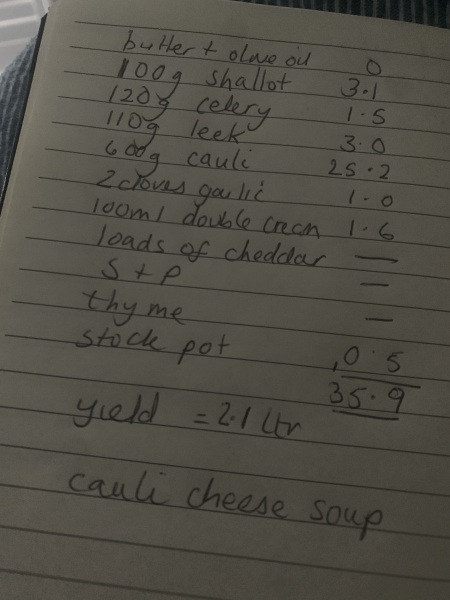 butter + olive oil 0
100g shallot 3.1
120g celery 1.5
110g leek 3.0
600g cauli 25.2
2 cloves garlic 1.0
100ml double cream 1.6
loads of cheddar —
S + P —
thyme —
stock pot 0.5
35.9
yield = 2.1 ltr
cauli cheese soup